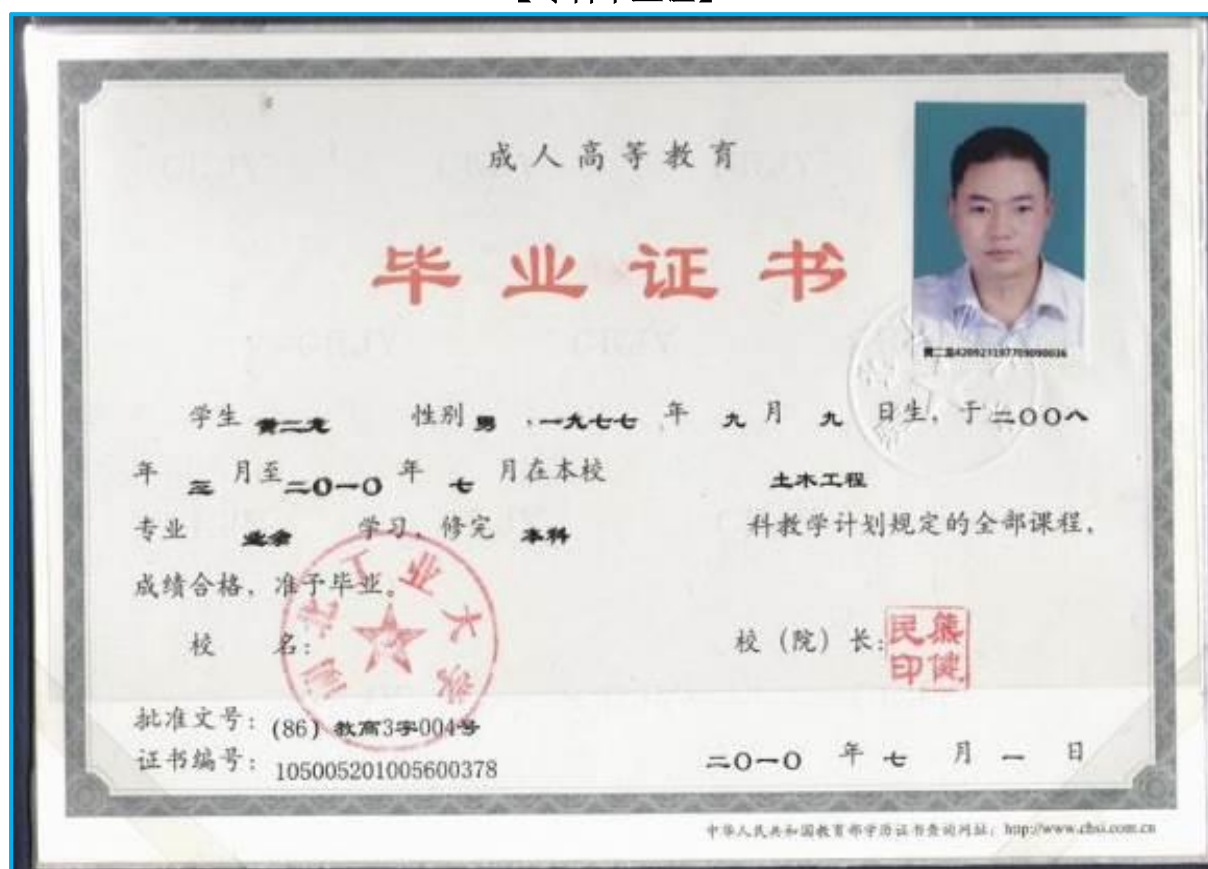 成人高等教育
毕业证书
黄二龙420923197709090036
学生 黄二龙 性别 男 ,一九七七 年 九 月 九 日生, 于二〇〇八
年 三 月至二〇一〇 年 七 月在本校 土木工程
专业 业余 学习, 修完 本科 科教学计划规定的全部课程,
成绩合格, 准予毕业。
湖北工业大学
校 名:
校 (院) 长:
熊健民印
批准文号: (86) 教高3字004号
证书编号: 105005201005600378
二〇一〇 年 七 月 一 日
中华人民共和国教育部学历证书查询网址: http://www.chsi.com.cn